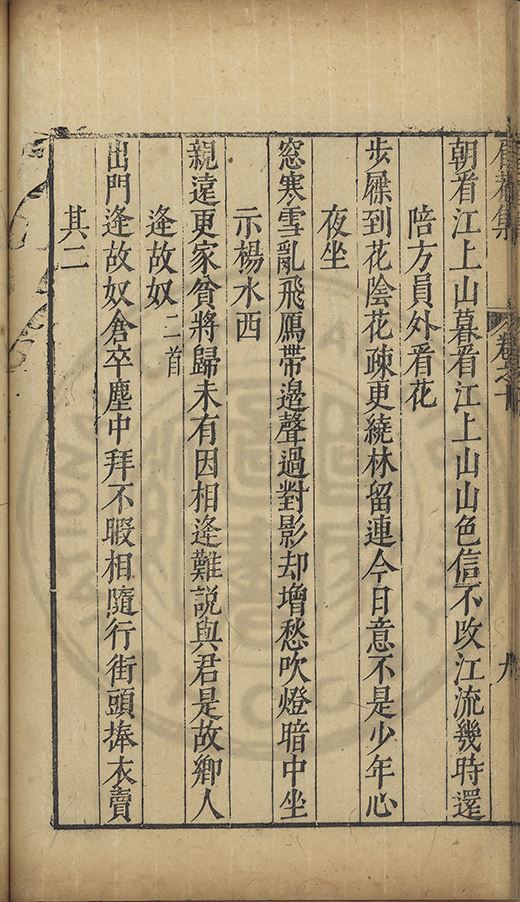 集
卷之十
朝看江上山暮看江上山山色信不改江流幾時還
陪方員外看花
步屧到花陰花疎更繞林留連今日意不是少年心
夜坐
窓寒雪亂飛鴈帶邊聲過對影却增愁吹燈暗中坐
示楊水西
親遠更家貧將歸未有因相逢難説與君是故鄉人
逢故奴二首
出門逢故奴倉卒塵中拜不暇相隨行街頭捧衣賣
其二